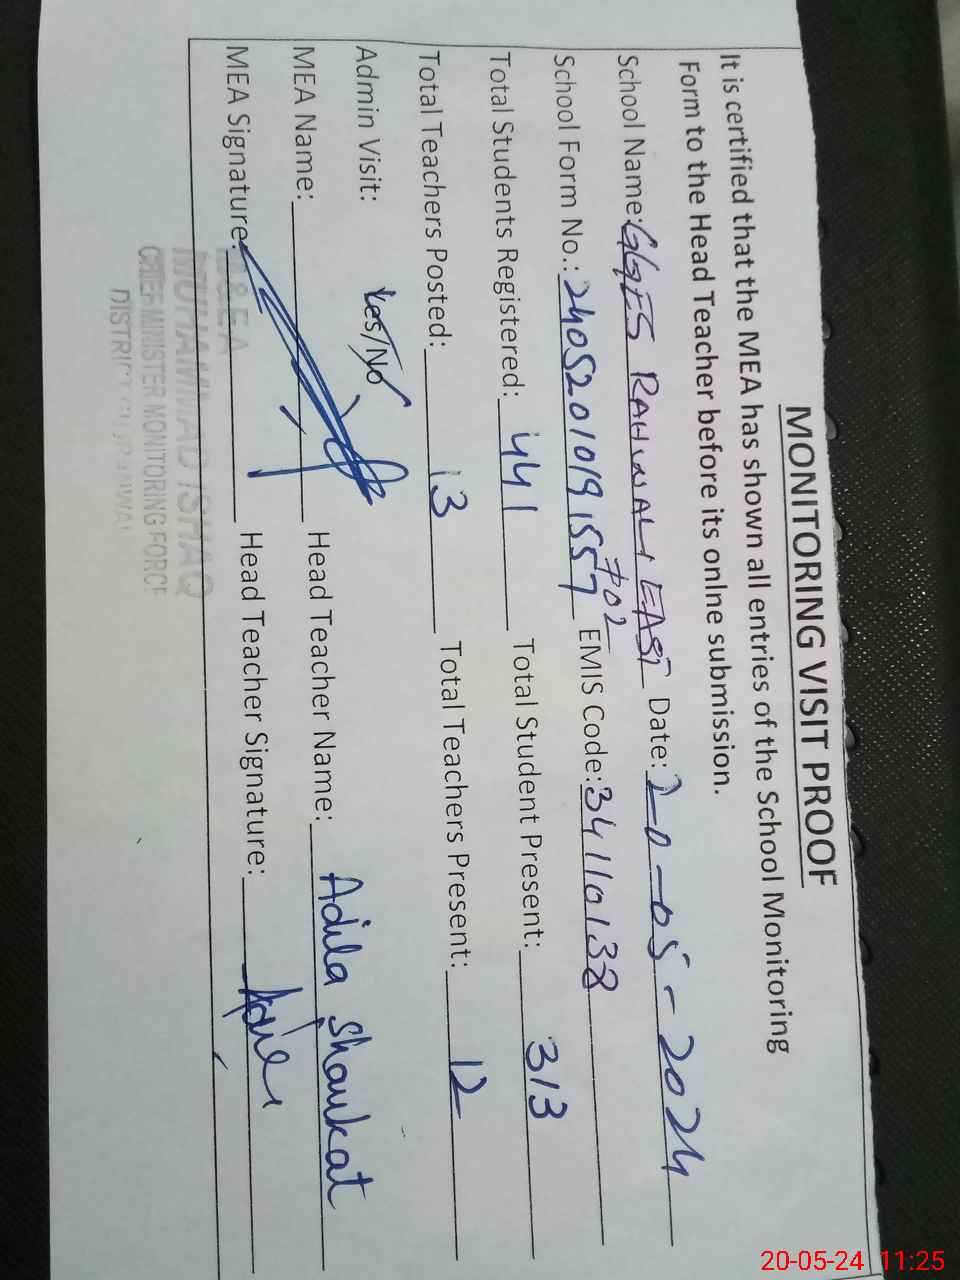 MONITORING VISIT PROOF
It is certified that the MEA has shown all entries of the School Monitoring
Form to the Head Teacher before its onlne submission.
School Name: GGES RAHWALI EAST Date: 20-05-2024
702
School Form No.: 24052010191557 EMIS Code: 34110138
Total Students Registered: 441 Total Student Present: 313
Total Teachers Posted: 13 Total Teachers Present: 12
Admin Visit: Yes/No
MEA Name: Head Teacher Name: Adila Shaukat
MEA Signature: Head Teacher Signature: Adila
M&EA
MUHAMMAD ISHAQ
CHIEF MINISTER MONITORING FORCE
DISTRICT
20-05-24 11:25